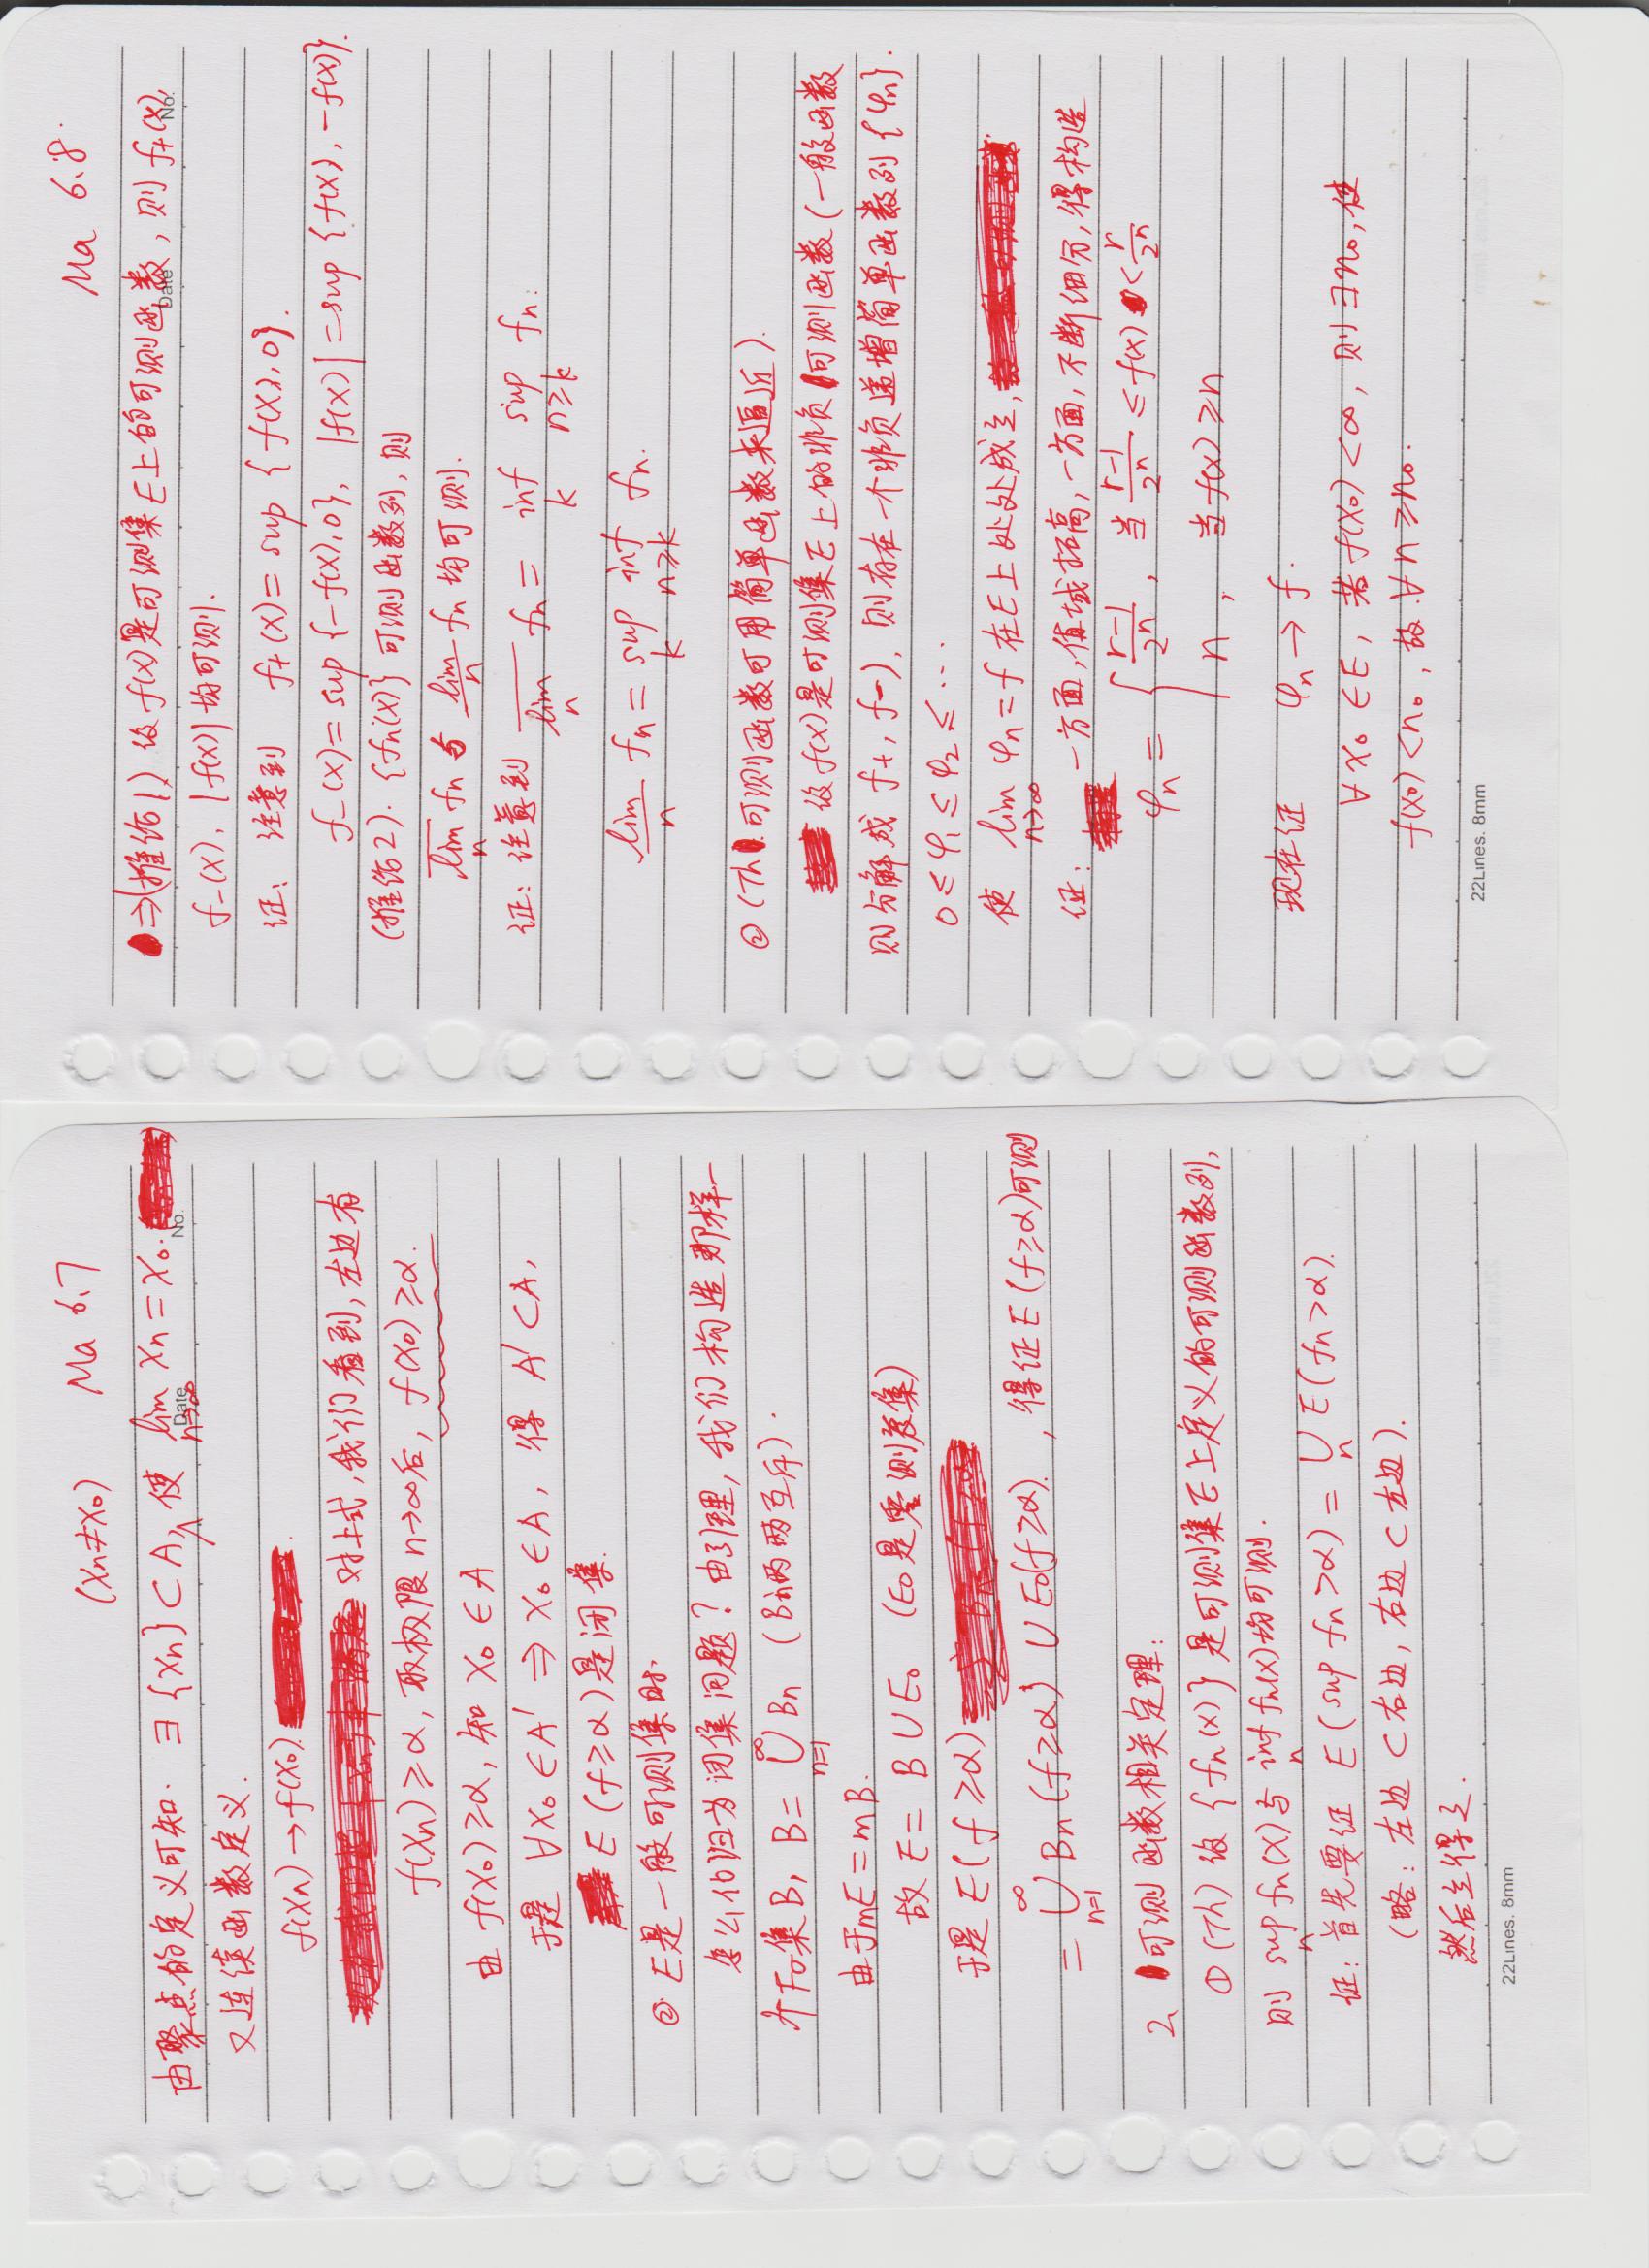 (xn≠x0) Ma 6.7
由聚点的定义可知. ∃{xn}⊂A, 使 lim n→∞ xn=x0.
Date No.
又连续函数定义.
f(xn)→f(x0).
对上式,我们看到,左边有
f(xn)≥α,取极限n→∞后, f(x0)≥α.
由 f(x0)≥α, 知 x0∈A
于是 ∀x0∈A′ ⇒ x0∈A, 得 A′⊂A,
E(f≥α)是闭集.
② E是一般可测集时.
怎么化归为闭集问题?由引理,我们构造那样一
个Fσ集B, B= ∞∪n=1 Bn (Bn两两互斥).
由于mE=mB.
故 E= B∪E0 (E0是零测度集)
于是 E(f≥α)
= ∞∪n=1 Bn(f≥α) ∪E0(f≥α). , 得证E(f≥α)可测
2、可测函数相关定理:
①(Th) 设{fn(x)}是可测集E上定义的可测函数列,
则 sup n fn(x)与 inf n fn(x)均可测.
证: 首先要证 E(sup fn>α)= ∪n E(fn>α).
(略: 左边⊂右边, 右边⊂左边).
然后立得之.
22Lines. 8mm
Ma 6.8.
⇒(推论1) 设f(x)是可测集E上的可测函数, 则 f+(x),
Date No.
f−(x), |f(x)|均可测.
证: 注意到 f+(x)= sup {f(x),0}.
f−(x)= sup {−f(x),0}, |f(x)|=sup {f(x), −f(x)}.
(推论2). {fn(x)}可测函数列, 则
l̅i̅m̅ n fn 与 l̲i̲m̲ n fn 均可测.
证: 注意到 l̅i̅m̅ n fn = inf k sup n≥k fn.
l̲i̲m̲ n fn = sup k inf n≥k fn.
②(Th 可测函数可用简单函数来逼近).
设f(x)是可测集E上的非负可测函数(一般函数
则分解成 f+, f−), 则存在一个非负递增简单函数列{φn}.
0≤φ1≤φ2≤⋯
使 lim n→∞ φn=f 在E上处处成立,
证: 一方面,值域拓高,一方面,不断细分,得构造
φn = { r−1/2^n , 当 r−1/2^n ≤f(x)< r/2^n
n , 当f(x)≥n
现在证 φn→f.
∀x0∈E, 若f(x0)<∞, 则∃n0,使
f(x0)<n0, 故.∀n≥n0.
22Lines. 8mm